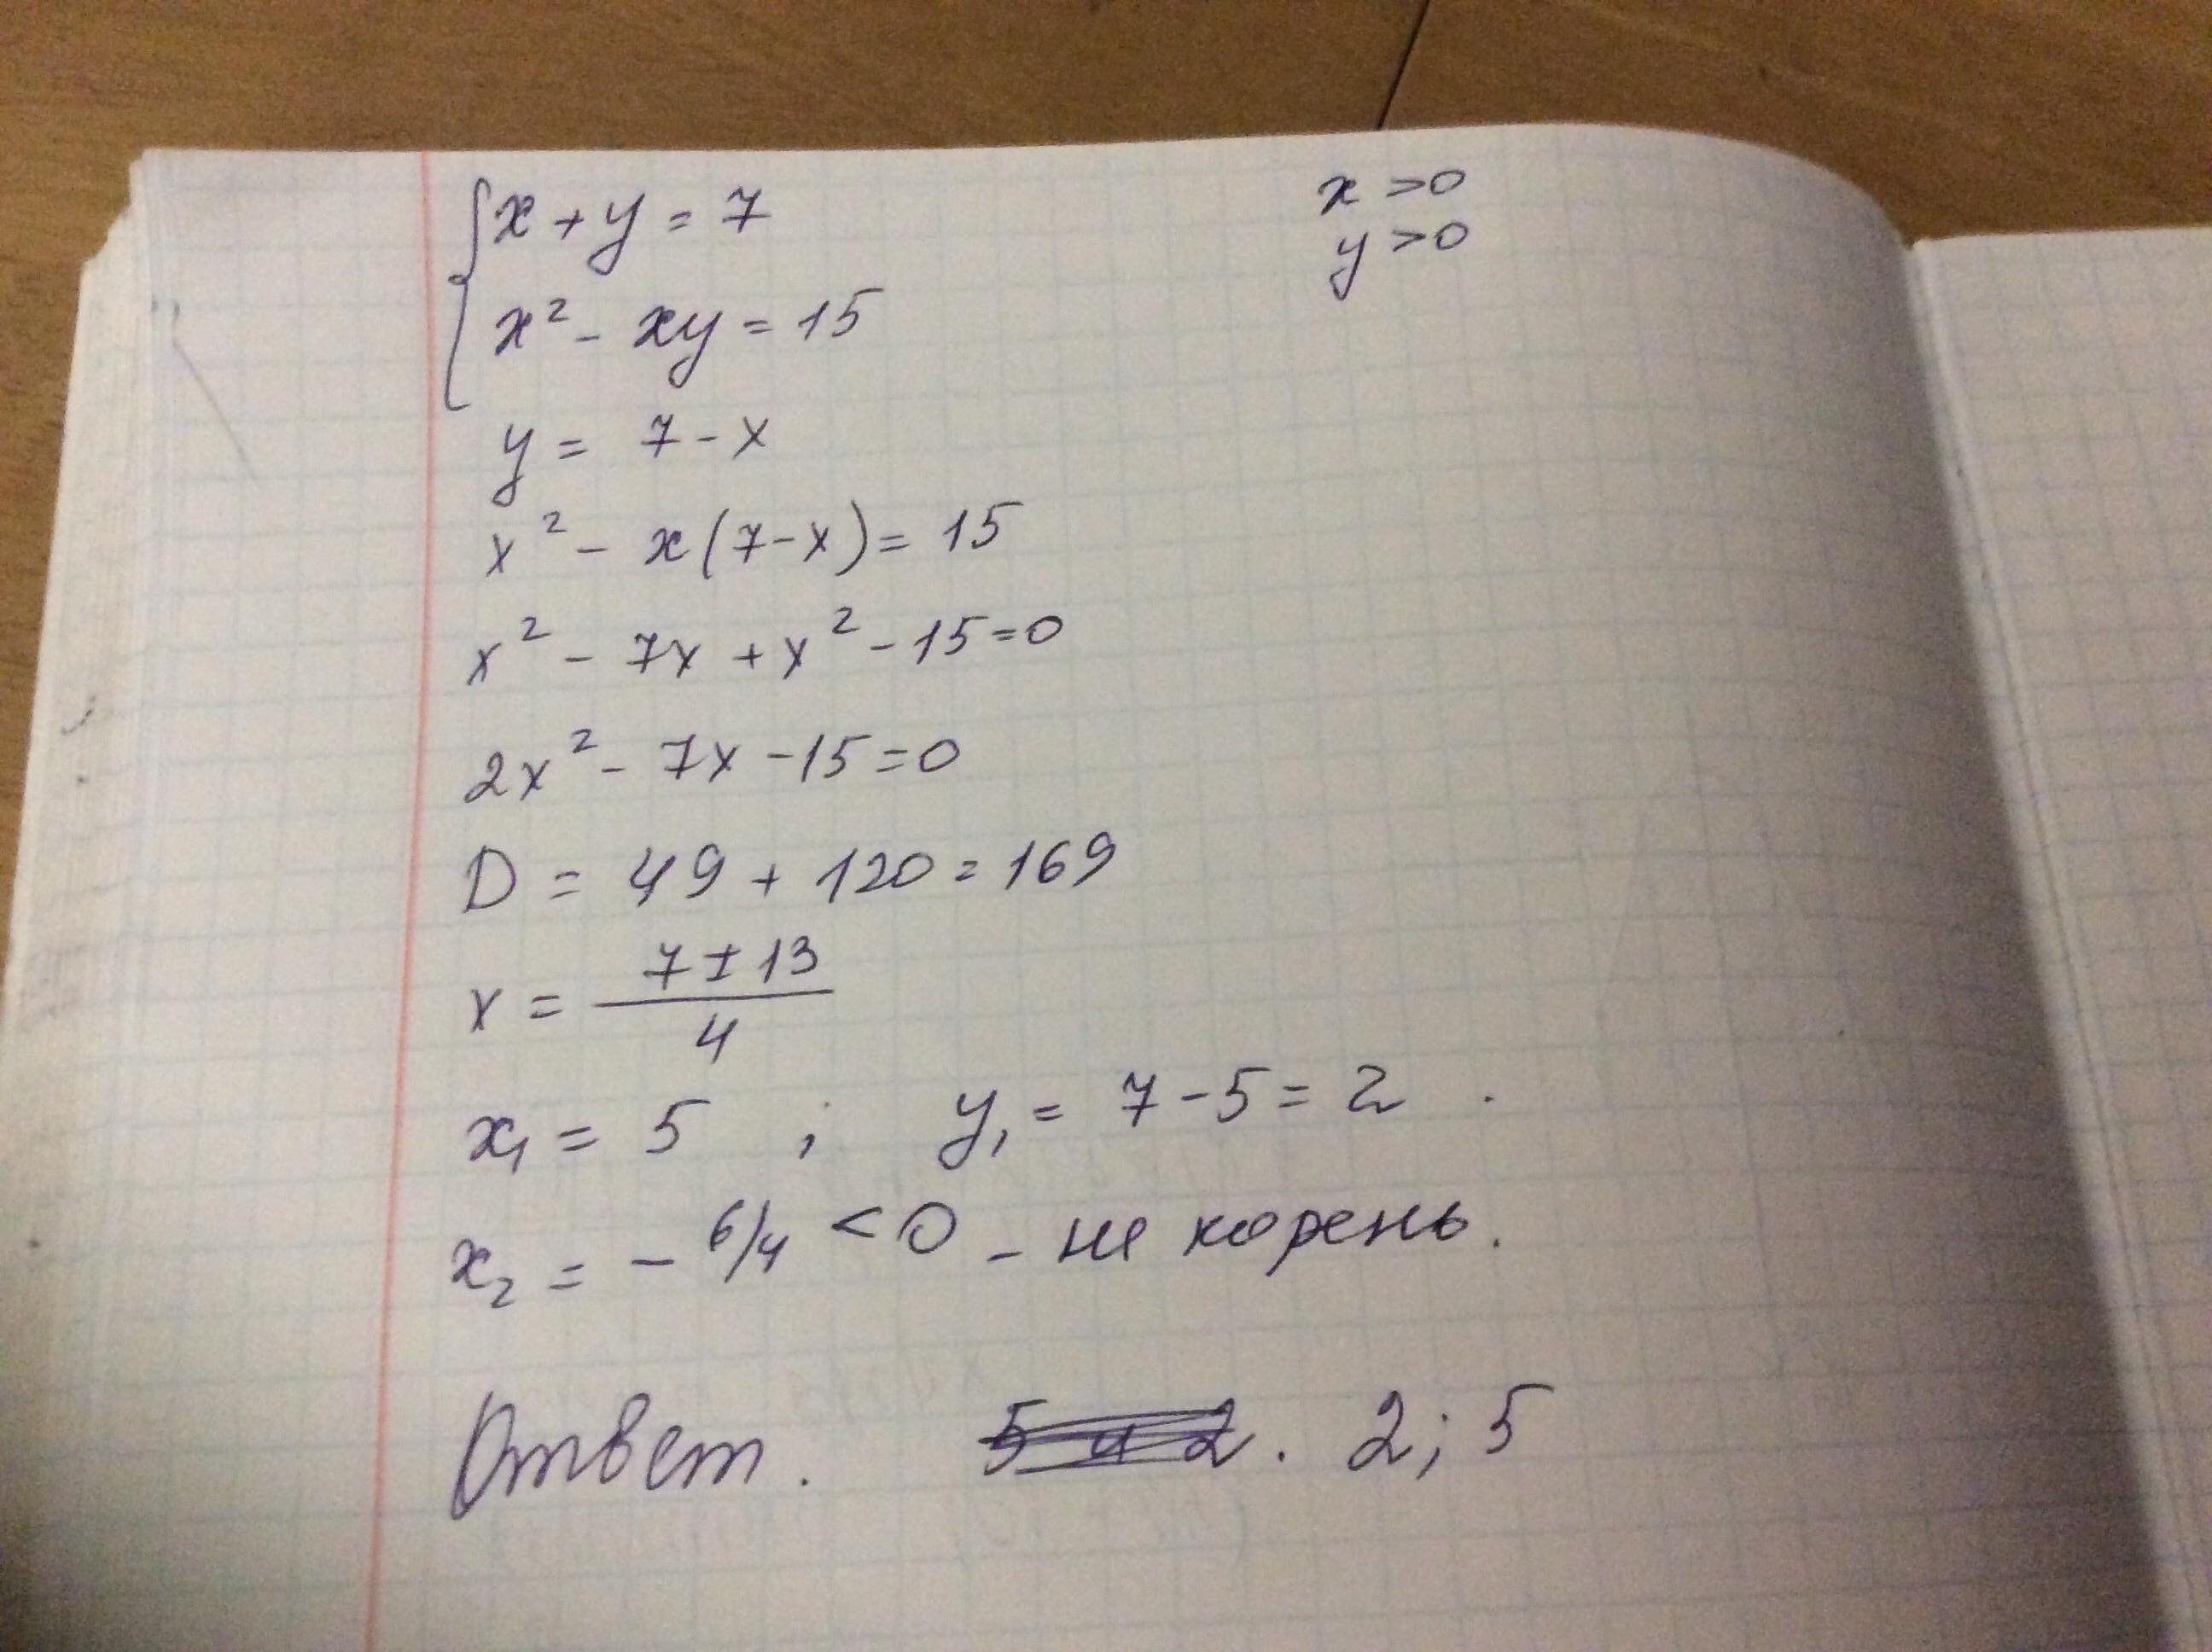 x + y = 7
x > 0
y > 0
x² - xy = 15
y = 7 - x
x² - x(7-x) = 15
x² - 7x + x² - 15 = 0
2x² - 7x - 15 = 0
D = 49 + 120 = 169
x = (7 ± 13)/4
x₁ = 5 ; y₁ = 7 - 5 = 2 .
x₂ = - 6/4 < 0 - не корень.
Ответ. 5 и 2. 2; 5